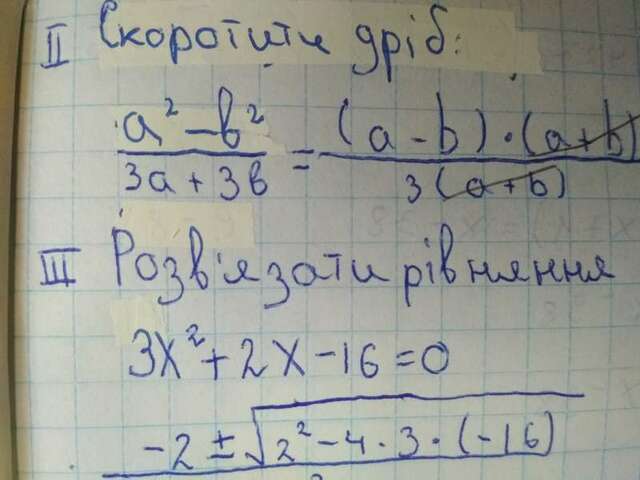 II Скоротити дріб:
a² - b² / 3a + 3b = (a - b) · (a + b) / 3 (a + b)
III Розв'язати рівняння
3x² + 2x - 16 = 0
-2 ± √2² - 4 · 3 · (-16)